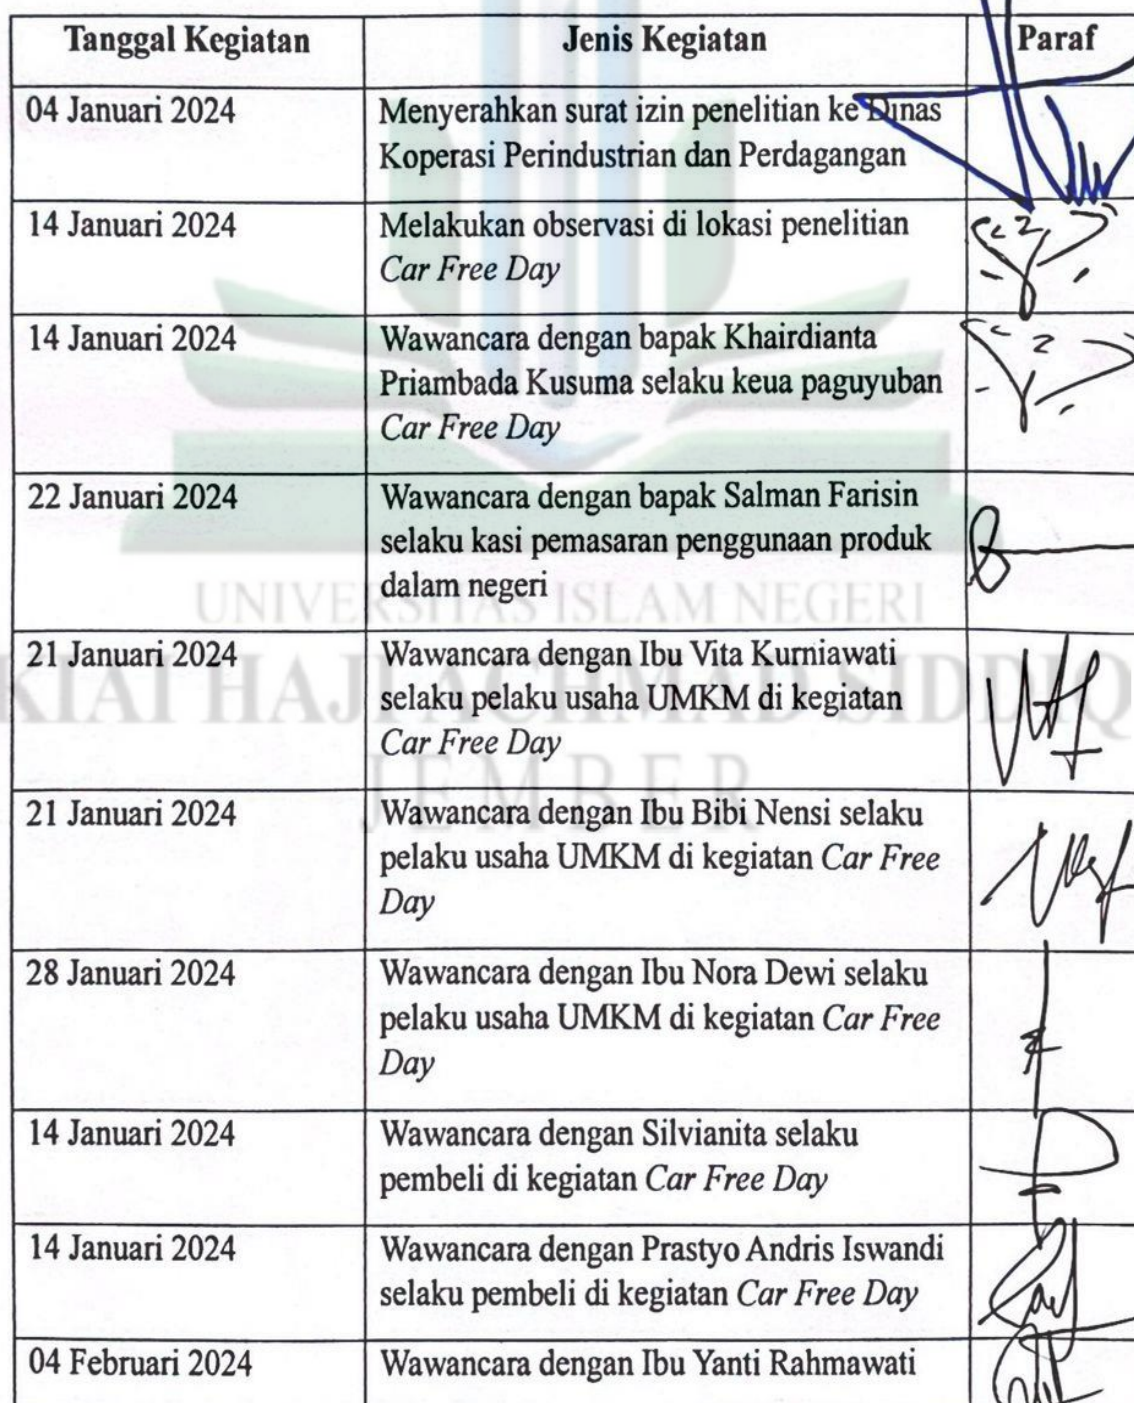 Tanggal Kegiatan Jenis Kegiatan Paraf
04 Januari 2024 Menyerahkan surat izin penelitian ke Dinas
Koperasi Perindustrian dan Perdagangan
14 Januari 2024 Melakukan observasi di lokasi penelitian
Car Free Day
14 Januari 2024 Wawancara dengan bapak Khairdianta
Priambada Kusuma selaku keua paguyuban
Car Free Day
22 Januari 2024 Wawancara dengan bapak Salman Farisin
selaku kasi pemasaran penggunaan produk
dalam negeri
UNIVERSITAS ISLAM NEGERI
21 Januari 2024 Wawancara dengan Ibu Vita Kurniawati
selaku pelaku usaha UMKM di kegiatan
KIAI HAJI ACHMAD SIDDIQ
Car Free Day
JEMBER
21 Januari 2024 Wawancara dengan Ibu Bibi Nensi selaku
pelaku usaha UMKM di kegiatan Car Free
Day
28 Januari 2024 Wawancara dengan Ibu Nora Dewi selaku
pelaku usaha UMKM di kegiatan Car Free
Day
14 Januari 2024 Wawancara dengan Silvianita selaku
pembeli di kegiatan Car Free Day
14 Januari 2024 Wawancara dengan Prastyo Andris Iswandi
selaku pembeli di kegiatan Car Free Day
04 Februari 2024 Wawancara dengan Ibu Yanti Rahmawati